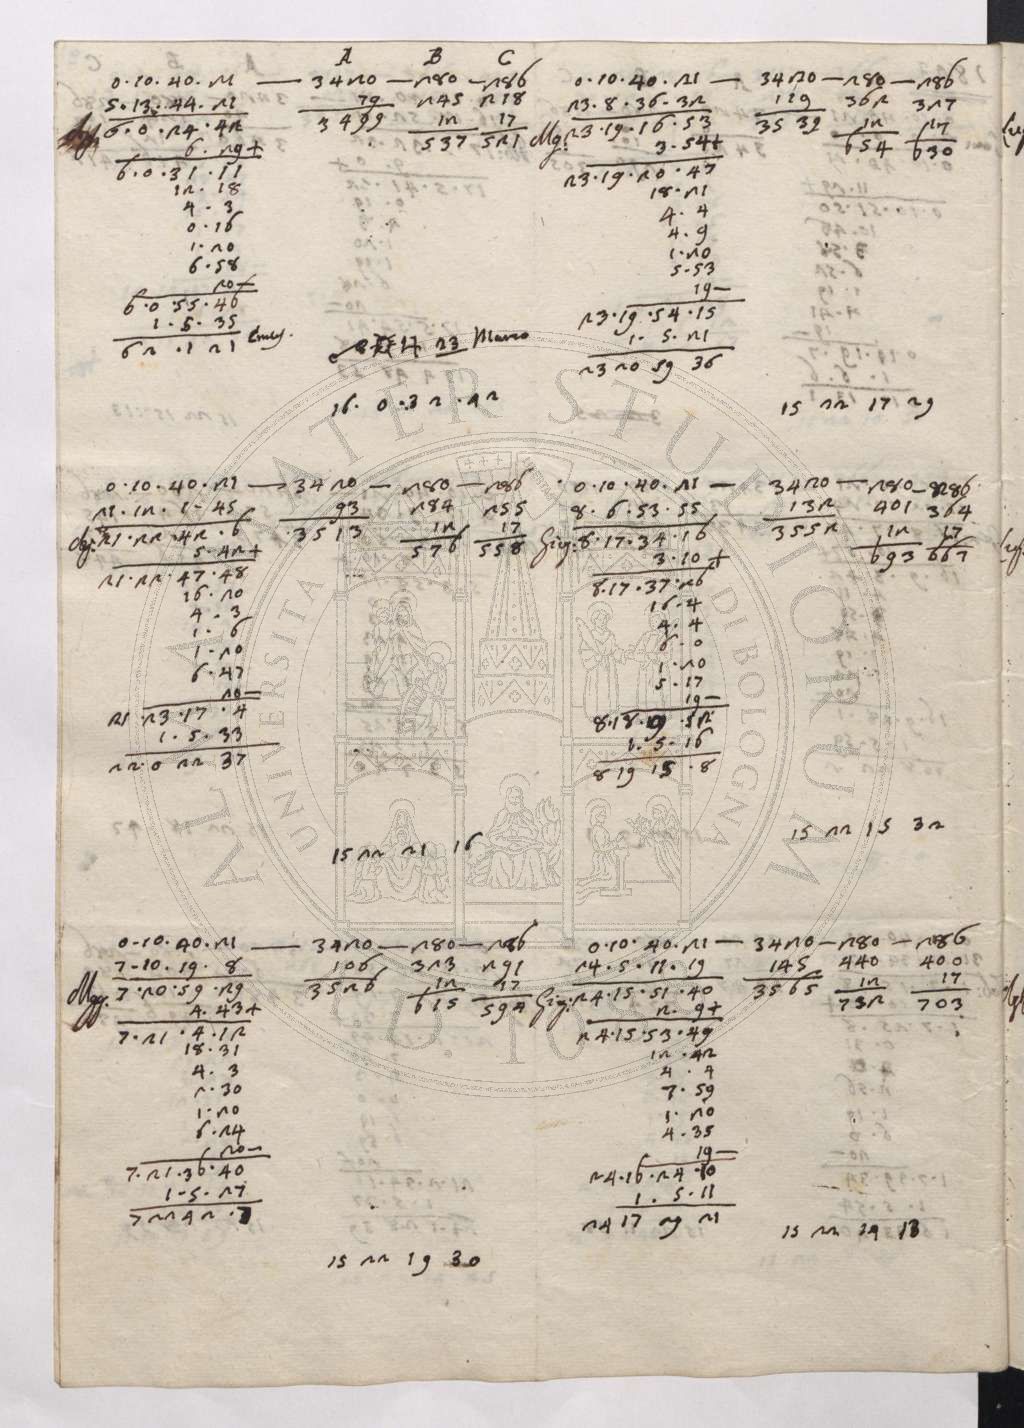 A B C
0·10·40·21 — 3420 — 280 — 286
5·13·44·21 79 245 218
6·0·24·42 3499 12 17
6·29+ 537 521
6·0·31·11
12·18
4·3
0·16
1·20
6·58
20—
6·0·55·46
1·5·35
62·1 21
23 Marco
16·0·32·42
0·10·40·21 — 3420 — 280 — 286
23·8·36·32 119 362 327
Mg. 23·19·16·53 3539 12 17
3·54+ 654 630
23·19·20·47
18·21
4·4
4·9
1·20
5·53
19—
23·19·54·15
1·5·21
23 20 59 36
15 22 17 29
0·10·40·21 — 3420 — 280 — 286
21·12·1·45 93 284 255
21·22·42·6 3513 12 17
5·42+ 576 558
21·22·47·48
16·20
4·3
1·6
1·20
6·47
20—
21·23·17·4
1·5·33
22·0 22 37
15 22 21 16
0·10·40·21 — 3420 — 280 — 286
8·6·53·55 132 401 364
Giug: 8·17·34·16 3552 12 17
3·10+ 693 667
8·17·37·26
16·4
4·4
6·0
1·20
5·17
19—
8·18·19·52
1·5·16
8 19 15·8
15 22 15 32
0·10·40·21 — 3420 — 280 — 286
7·10·19·8 106 323 291
Mgg. 7·20·59·29 3526 12 17
4·43+ 615 594
7·21·4·12
18·31
4·3
2·30
1·20
6·24
20—
7·21·36·40
1·5·27
7 22 42·7
15 22 19 30
0·10·40·21 — 3420 — 280 — 286
24·5·11·19 145 440 400
Giug: 24·15·51·40 3565 12 17
2·9+ 732 703
24·15·53·49
12·42
4·4
7·59
1·20
4·35
19—
24·16·24·10
1·5·11
24 17 29 21
15 22 19 13
ALMA MATER STUDIORUM
UNIVERSITA DI BOLOGNA
A.D. 1088